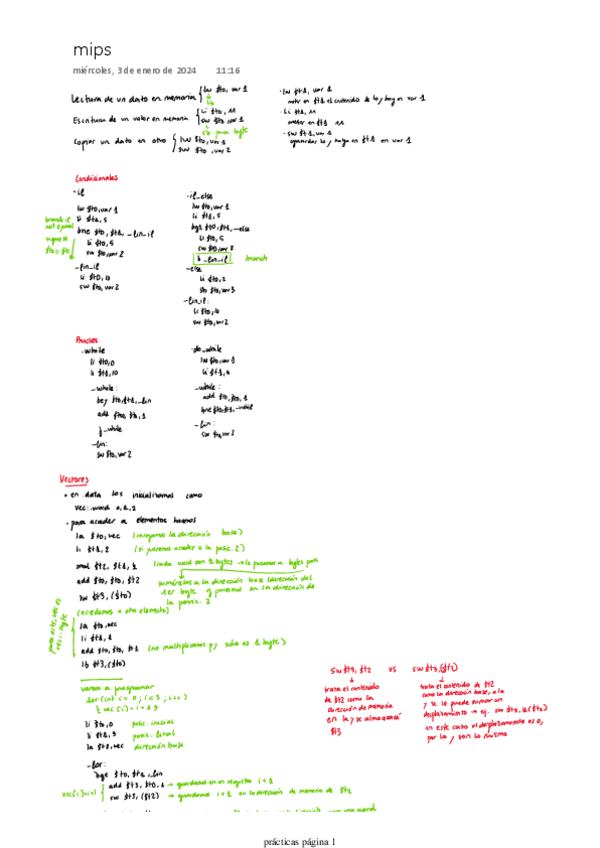 mips
miércoles, 3 de enero de 2024 11:16
Lectura de un dato en memoria { lw $t0, var 1
lb
Escritura de un valor en memoria { li $t0, 11
sw $t0, var 1
sb para byte
Copiar un dato en otro { lw $t0, var 1
sw $t0, var 2
· lw $t1, var 1
meter en $t1 el contenido de lo q hay en var 1
· li $t1, 11
meter en $t1 11
· sw $t1, var 1
guardar lo q haya en $t1 en var 1
Condicionales
· if
lw $t0, var 1
li $t1, 5
bne $t0, $t1, _fin_if
li $t0, 5
sw $t0, var 2
_fin_if
li $t0, 10
sw $t0, var 2
branch if
not equal
· if_else
lw $t0, var 1
li $t1, 5
bgt $t0, $t1, _else
li $t0, 5
sw $t0, var 2
b _fin_if branch
_else
li $t0, 2
$t0, var 3
_fin_if:
li $t0, 10
sw $t0, var 2
Bucles
· while
li $t0, 0
li $t1, 10
_while:
$t0, $t1, _fin
add $t0, $t0, 1
j _while
_fin:
sw $t0, var 2
· do_while
lw $t0, var 1
li $t1, 4
_while:
add $t0, $t0, 1
bne $t0, $t1, _while
_fin:
sw $t0, var 2
Vectores
· en .data los inicializamos como
vec: .word 0, 1, 2
· para acceder a elementos hacemos
la $t0, vec (cargamos la dirección base)
li $t1, 2 (si queremos acceder a la posic. 2)
mul $t2, $t1, 4 (cada word son 4 bytes → lo pasamos a bytes para
add $t0, $t0, $t2 sumárselos a la dirección base (dirección del
1er byte y ponernos en la dirección de
lw $t3, ($t0) la posic. 2
(accedemos a otro elemento)
la $t0, vec
li $t1, 1
add $t0, $t0, $t1 (no multiplicamos pq solo es 1 byte)
lb $t3, ($t0)
vamos a programar
for (int i = 0; i < 3; i++)
vec[i] = i + 1
li $t0, 0 posic. inicial
li $t1, 3 posic. final
la $t2, vec dirección base
_for:
bge $t0, $t1, _fin
add $t3, $t0, 1 → guardamos en un registro i+1
sw $t3, ($t2) → guardamos i+1 en la dirección de memoria de $t2
sw $t3, $t2 vs sw $t3, ($t2)
trata el contenido
de $t2 como la
dirección de memoria
en la q se almacenará
$t3
trata el contenido de $t2
como la dirección base, a la
q se le puede sumar un
desplazamiento → ej. sw $t3, ($t2)
en este caso el desplazamiento es 0,
por lo q son lo mismo
prácticas página 1